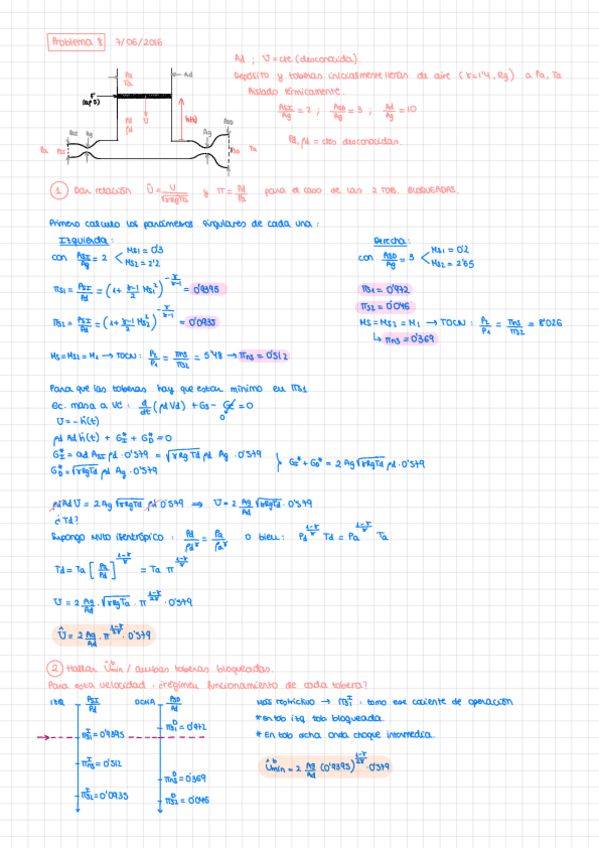 Problema 8 7/06/2016
Ad ; U = cte (desconocida).
Depósito y toberas inicialmente llenas de aire (γ=1'4, Rg) a Pa, Ta
Aislado térmicamente.
ASI/Ag = 2 ; ASD/Ag = 3 ; Ad/Ag = 10
Pd, ρd = ctes desconocidas.
Pa
Ta
Ad
F
U
h(t)
Pd
ρd
ASI
Ag
Ag
ASD
Pa
Ta
1 Dar relación Û = U/√(γRgTa) y π = Pd/Pa para el caso de las 2 TOB. BLOQUEADAS.
Primero calculo los parámetros singulares de cada una:
Izquierda:
con ASI/Ag = 2 < MS1 = 0'3
MS2 = 2'2
πS1 = PSI/Pd = (1 + γ-1/2 MS1²)^(-γ/γ-1) = 0'9395
πS2 = PSI/Pd = (1 + γ-1/2 MS2²)^(-γ/γ-1) = 0'0935
MS = MS2 = M1 → TOCN: P2/P1 = πns/πS2 = 5'48 → πns = 0'512
Derecha:
con ASD/Ag = 3 < MS1 = 0'2
MS2 = 2'65
πS1 = 0'972
πS2 = 0'046
MS = MS2 = M1 → TOCN: P2/P1 = πns/πS2 = 8'026
↳ πns = 0'369
Para que las toberas hay que estar mínimo en πS1
Ec. masa a VC: d/dt (ρd Vd) + Gs - Ge = 0
0
U = -ḣ(t)
ρd Ad ḣ(t) + GI* + GD* = 0
GD* = √(γRgTd) ρd Ag · 0'579
GI* + GD* = 2 Ag √(γRgTd) ρd · 0'579
ρd Ad U = 2 Ag √(γRgTd) ρd 0'579 ⇒ U = 2 Ag/Ad √(γRgTd) · 0'579
¿Td?
Supongo mvto isentrópico: Pd/ρd^γ = Pa/ρa^γ o bien: Pd^(1-γ/γ) Td = Pa^(1-γ/γ) Ta
Td = Ta [Pa/Pd]^(1-γ/γ) = Ta π^(1-γ/γ)
U = 2 Ag/Ad · √(γRgTa) · π^(1-γ/2γ) · 0'579
Û = 2 Ag/Ad · π^(1-γ/2γ) · 0'579
2 Hallar Ûmin / ambas toberas bloqueadas.
Para esta velocidad: ¿régimen funcionamiento de cada tobera?
IZQ PSI/Pd DCHA PSD/Pd
πS1^D = 0'972
πS1^I = 0'9395
πns^I = 0'512
πns^D = 0'369
πS2^I = 0'0935
πS2^D = 0'046
Más restrictivo → πS1^I : tomo ese cociente de operación
* En tob izq tob bloqueada.
* En tob dcha onda choque intermedia.
Ûmin = 2 Ag/Ad (0'9395)^(1-γ/2γ) · 0'579